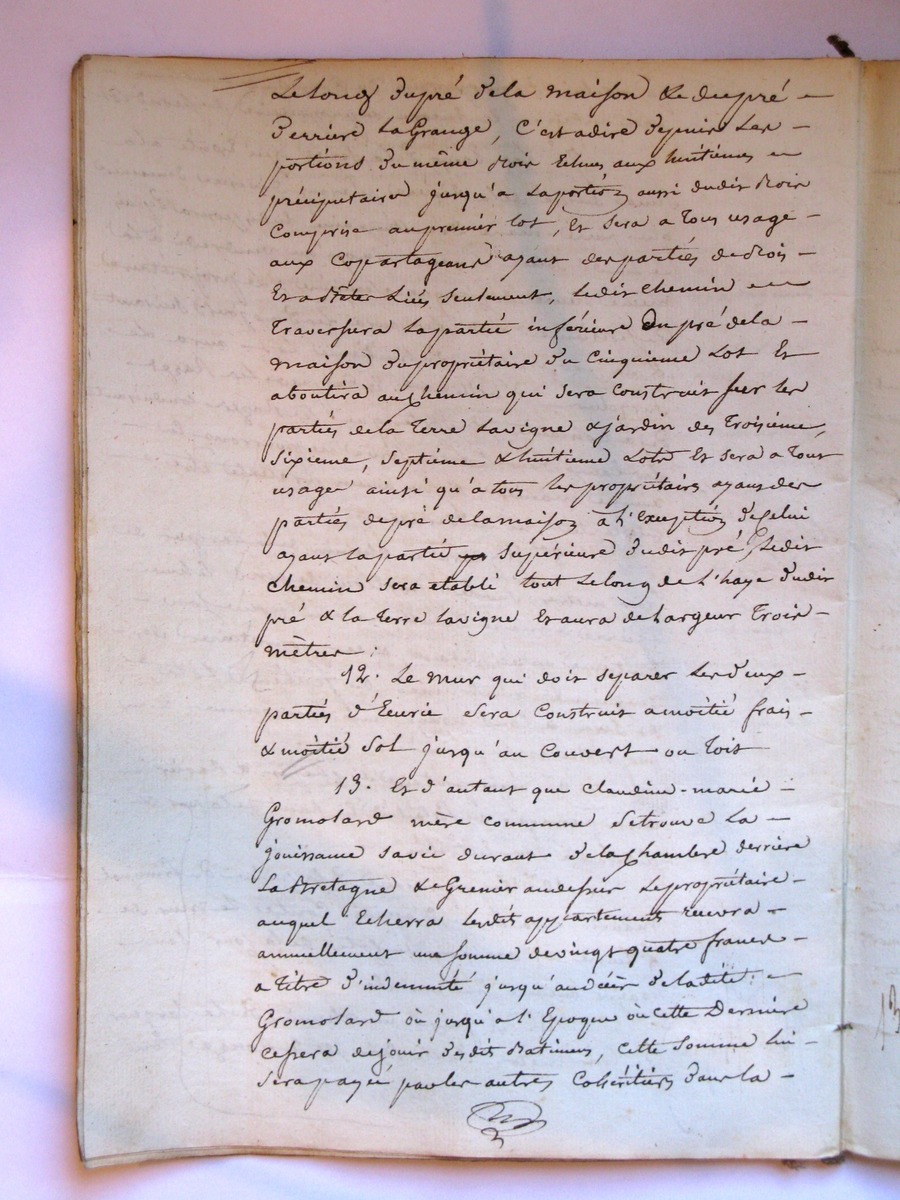 Le long du pré de la maison & de du pré –
Derriere La Grange, C'est adire depuis Les –
portions du même Bois Echues aux huitiemes –
préciputaires jusqu'a La portion aussi dudit Bois
Comprise au premier lot, Et sera a Tous usage –
aux Copartageans ayant des partiés de Bois –
Et a Bêtes Liées seulement, Ledit Chemin –
Traversera La partié inférieure du pré de la –
maison du propriétaire du Cinquieme Lot Et
aboutira au Chemin qui sera Construit sur les
partiés de la Terre La vigne & jardin des Troisiéme,
Sixieme, Septiéme & huitieme Lots Et sera a Tout
usage ainsi qu'a tous les propriétaires ayans des
partiés de pré de la maison à l'Exception de Celui
ayant la partié Supérieure dudit pré, Ledit
Chemin sera etabli tout Le long de l'haye dudit
pré & la Terre La vigne Et aura de Largeur Trois –
mètres ;
12. Le mur qui doit separer Les deux –
partiés d'Ecurie Sera Construit a moitié frais –
& moitié Sol jusqu'au Couvert ou Toit
13. Et d'autant que Claudine-marie –
Gromolard mère commune Se trouve La –
jouissance Sa vie durant de la Chambre derriere
La Bretagne & le Grenier au dessus Le propriétaire –
auquel Echerra Lesdits appartement recevra –
annuellement une somme de vingt quatre francs –
a Titre d'indemnité jusqu'au décès de la dite –
Gromolard où jusqu'a l'Epoque où cette Derniére
cessera de jouir desdits Batimens, Cette Somme lui –
Sera payée par les autres Cohéritiers dans la –